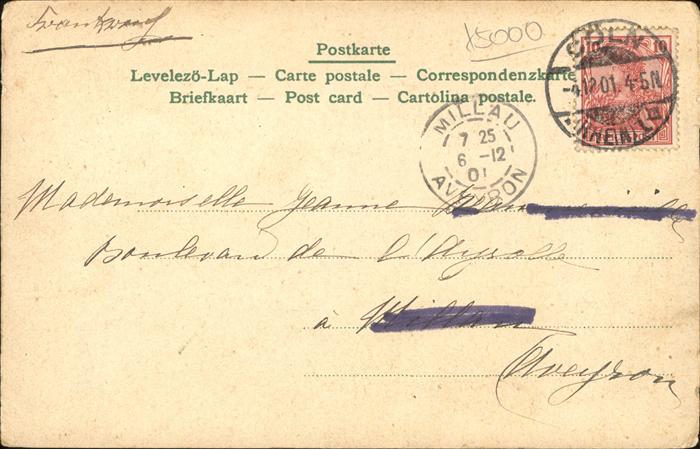 Frankreich
15000
Postkarte
Levelező-Lap — Carte postale — Correspondenzkarte
Briefkaart — Post card — Cartolina postale.
10 10
CÖLN
-4.12.01. 4-5N.
(RHEIN) 1
MILLAU
7 25
6 -12
01
AVEYRON
Mademoiselle Jeanne
Boulevard de l'Ayrolle
à Millau
Aveyron